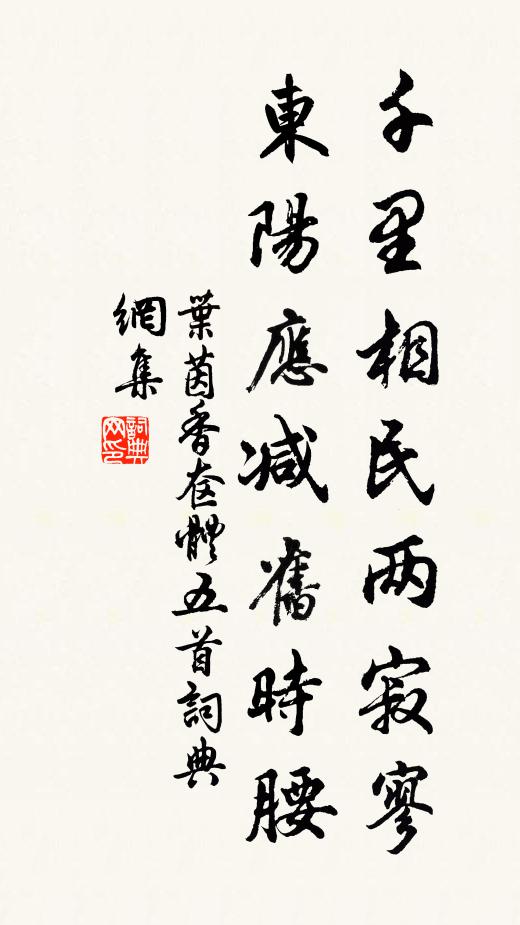 千里相民两寂寥
東陽應减舊時腰
葉茵香奁體五首詞典
網集
詞典網印